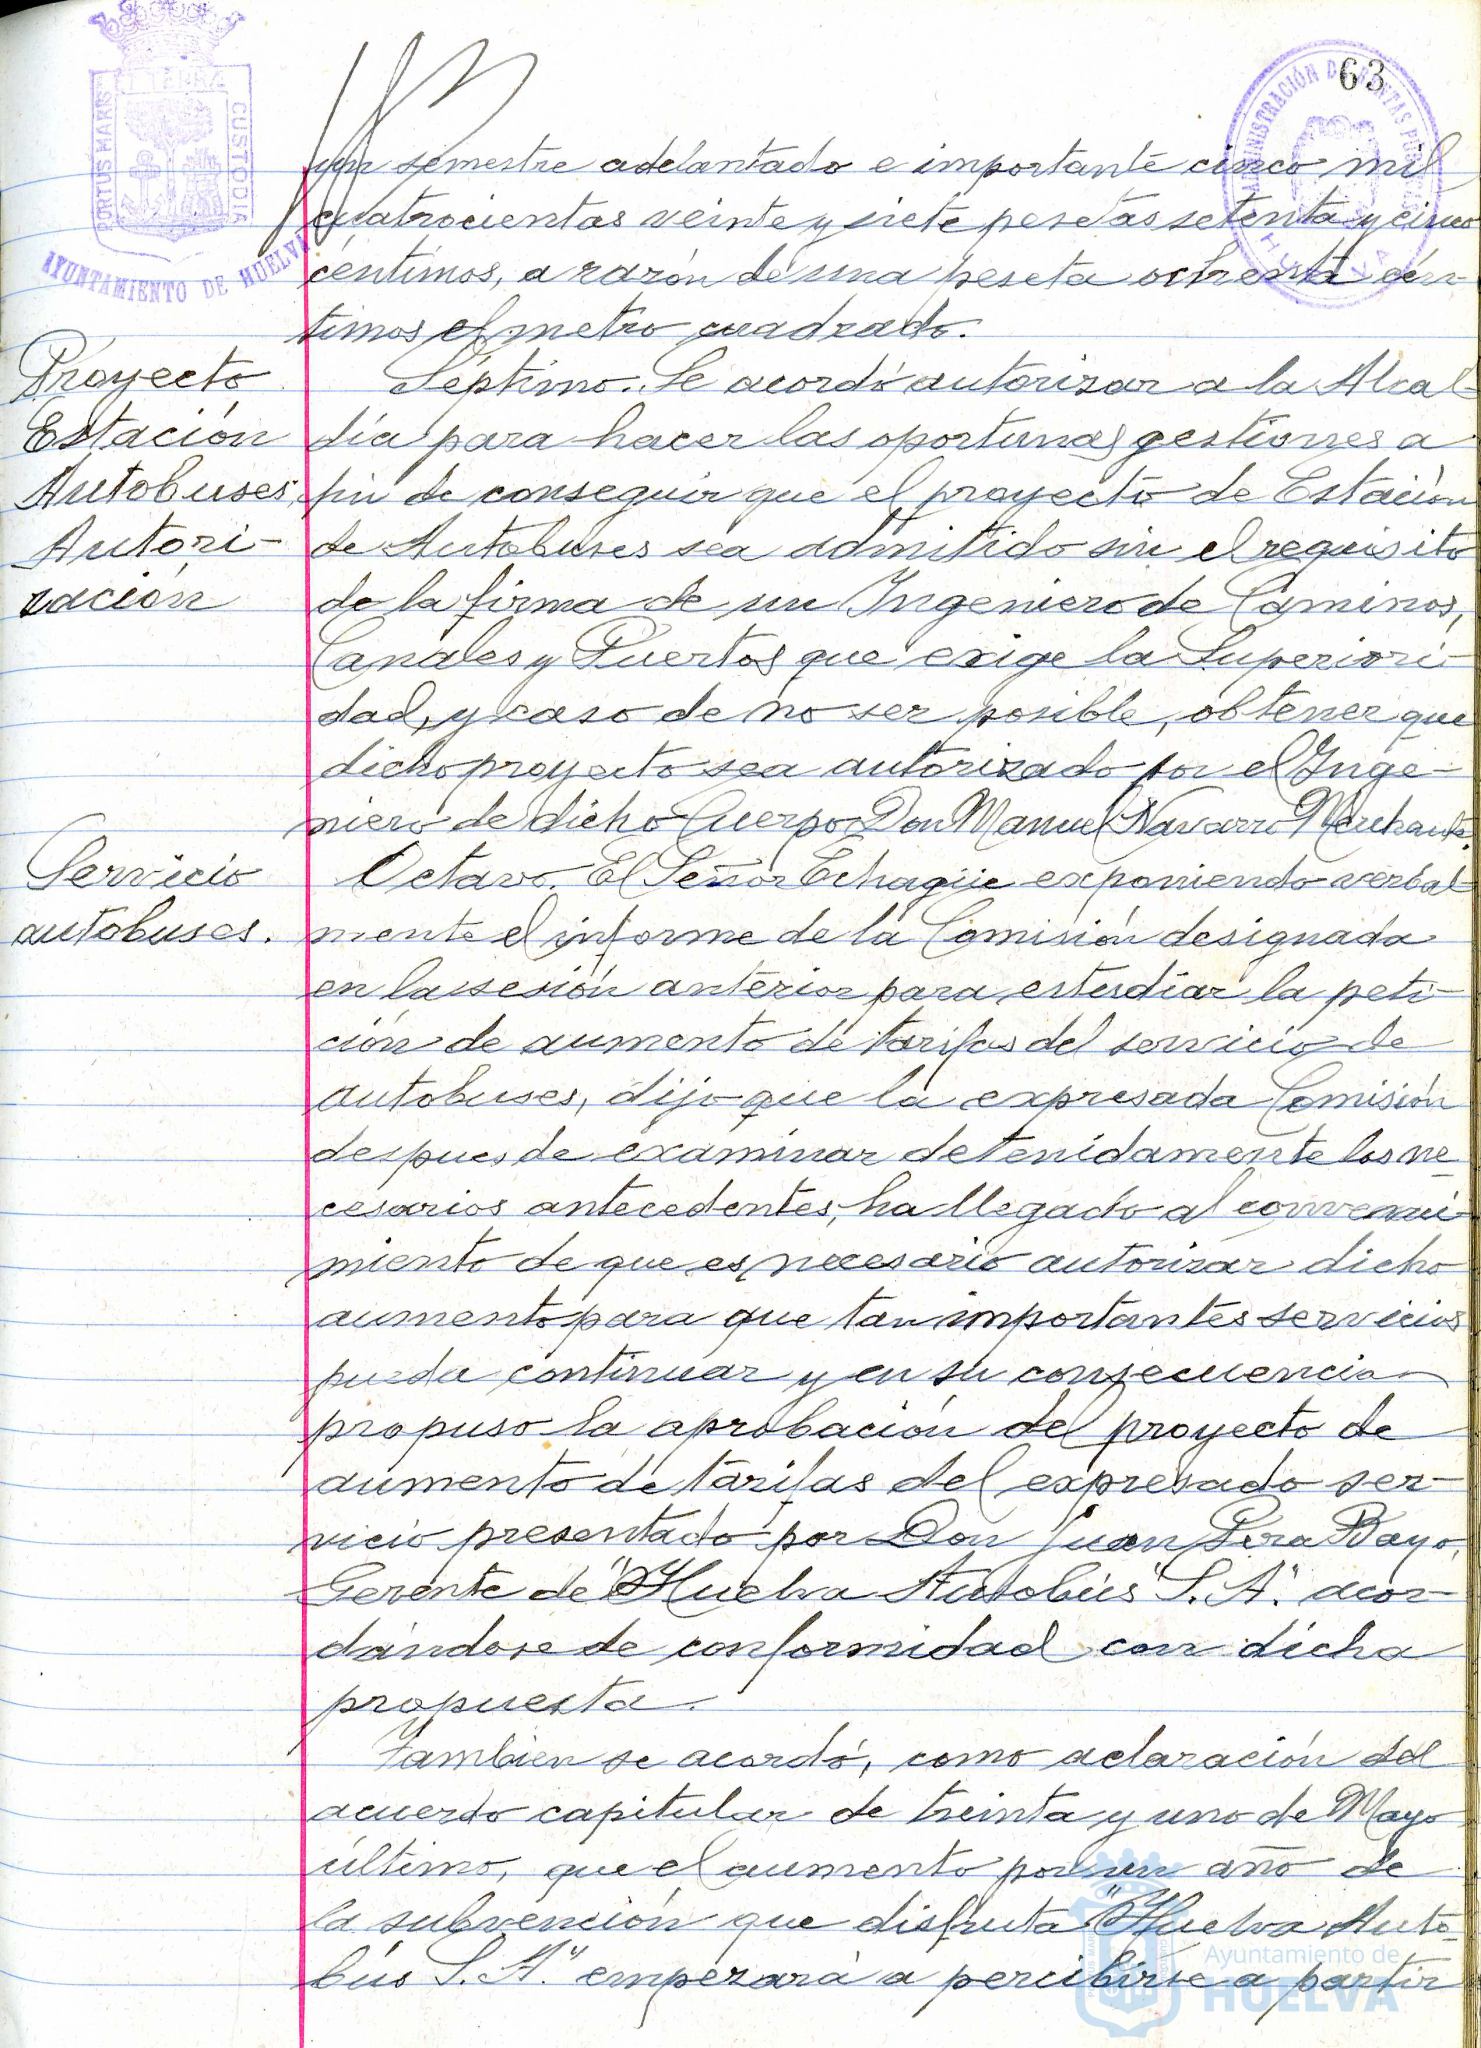 63
PORTUS MARIS
ET TERRÆ
CUSTODIA
AYUNTAMIENTO DE HUELVA
ADMINISTRACIÓN DE RENTAS PÚBLICAS
HUELVA
un semestre adelantado e importante cinco mil
cuatrocientas veinte y siete pesetas setenta y cinco
céntimos, a razón de una peseta ochenta cén-
timos el metro cuadrado.
Proyecto
Estación
Autobuses.
Autori-
zación
Séptimo. Se acordó autorizar a la Alcal-
día para hacer las oportunas gestiones a
fin de conseguir que el proyecto de Estación
de Autobuses sea admitido sin el requisito
de la firma de un Ingeniero de Caminos,
Canales y Puertos que exige la Superiori-
dad, y caso de no ser posible, obtener que
dicho proyecto sea autorizado por el Inge-
niero de dicho Cuerpo Don Manuel Navarro Merchante.
Servicio
autobuses.
Octavo. El Señor Echagüe exponiendo verbal-
mente el informe de la Comisión designada
en la sesión anterior para estudiar la peti-
ción de aumento de tarifas del servicio de
autobuses, dijo que la expresada Comisión
despues de examinar detenidamente los ne-
cesarios antecedentes, ha llegado al convenci-
miento de que es necesario autorizar dicho
aumento para que tan importantes servicios
pueda continuar y en su consecuencia
propuso la aprobación del proyecto de
aumento de tarifas del expresado ser-
vicio presentado por Don Juan Pera Bayo,
Gerente de "Huelva Autobús S.A." acor-
dándose de conformidad con dicha
propuesta.
Tambien se acordó, como aclaración del
acuerdo capitular de treinta y uno de Mayo
último, que el aumento por un año de
la subvención que disfruta "Huelva Auto-
bús S.A." empezará a percibirse a partir
Ayuntamiento de
HUELVA